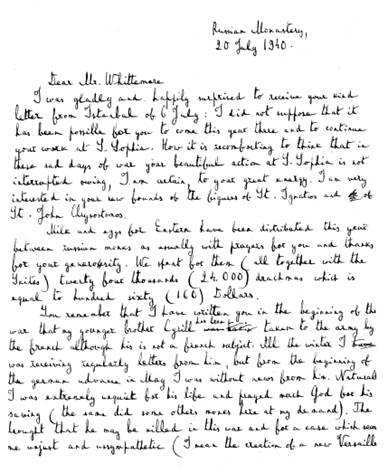 Russian Monastery,
20 July 1940.
Dear Mr. Whittemore
I was gladly and happily surprised to receive your kind
letter from Istanbul of 6 July: I did not suppose that it
has been possible for you to come this year there and to continue
your work at S. Sophia. How it is recomforting to think that in
these sad days of war your beautiful action at S. Sophia is not
interrupted owing, I am certain, to your great energy. I am very
interested in your new founds of the figures of St. Ignatios and of
St. John Chrysostomos.
Milk and eggs for Eastern have been distributed this year
between russian monks as usually with prayers for you and thanks
for your generosity. We spent for them (all together with the
Skites) twenty four thousands (24.000) drachmas which is
equal to hundred sixty (160) Dollars.
You remember that I have written you in the beginning of the
war that my younger brother Cyrill has been taken to the army by
the french although his is not a french subject. All the winter I
was receiving regularly letters from him, but from the beginning of
the german advance in May I was without news from him. Naturall
I was extremely unquiet for his life and prayed much God for his
saving (the same did some others monks here at my demand). The
thought that he may be killed in this war and for a case which seem
me unjust and unsympathetic (I mean the erection of a new Versaille